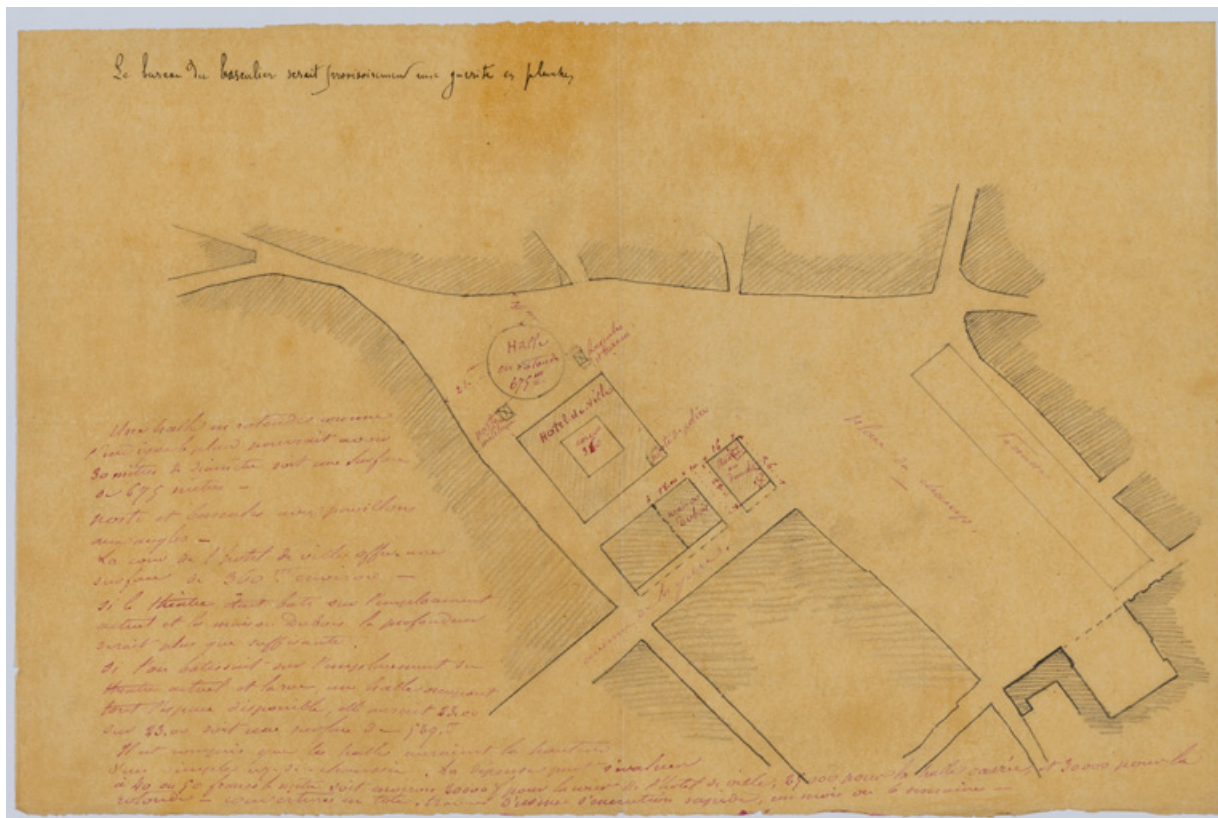 Le bureau du basculier serait provisoirement une guerite en planches
Halle
en rotonde
675 m
Hotel de Ville
cour
360
maison
Dubois
Place du champ
Terrasse
Une halle en rotonde comme
l'indique le plan pourrait avoir
30 mètres de diamètre soit une surface
de 675 mètres -
poste et bascules avec pavillons
aux angles -
La cour de l'hotel de ville offre une
surface de 360 m environ -
si le théâtre était bati sur l'emplacement
actuel et la maison Dubois la profondeur
serait plus que suffisante.
si l'on batissait sur l'emplacement du
théatre actuel et la rue, une halle occupant
tout l'espace disponible, elle aurait 23.00
sur 23.00 soit une surface de 529.m
Il est compris que les halles auraient la hauteur
d'un simple rez-de-chaussée. La dépense peut s'évaluer
à 40 ou 50 francs le mètre soit environ 20000 f pour la cour de l'hotel de ville, 25000 pour la halle carrée, et 30000 pour la
rotonde - couverture en tole, travaux d'usine d'exécution rapide, un mois ou 6 semaines -